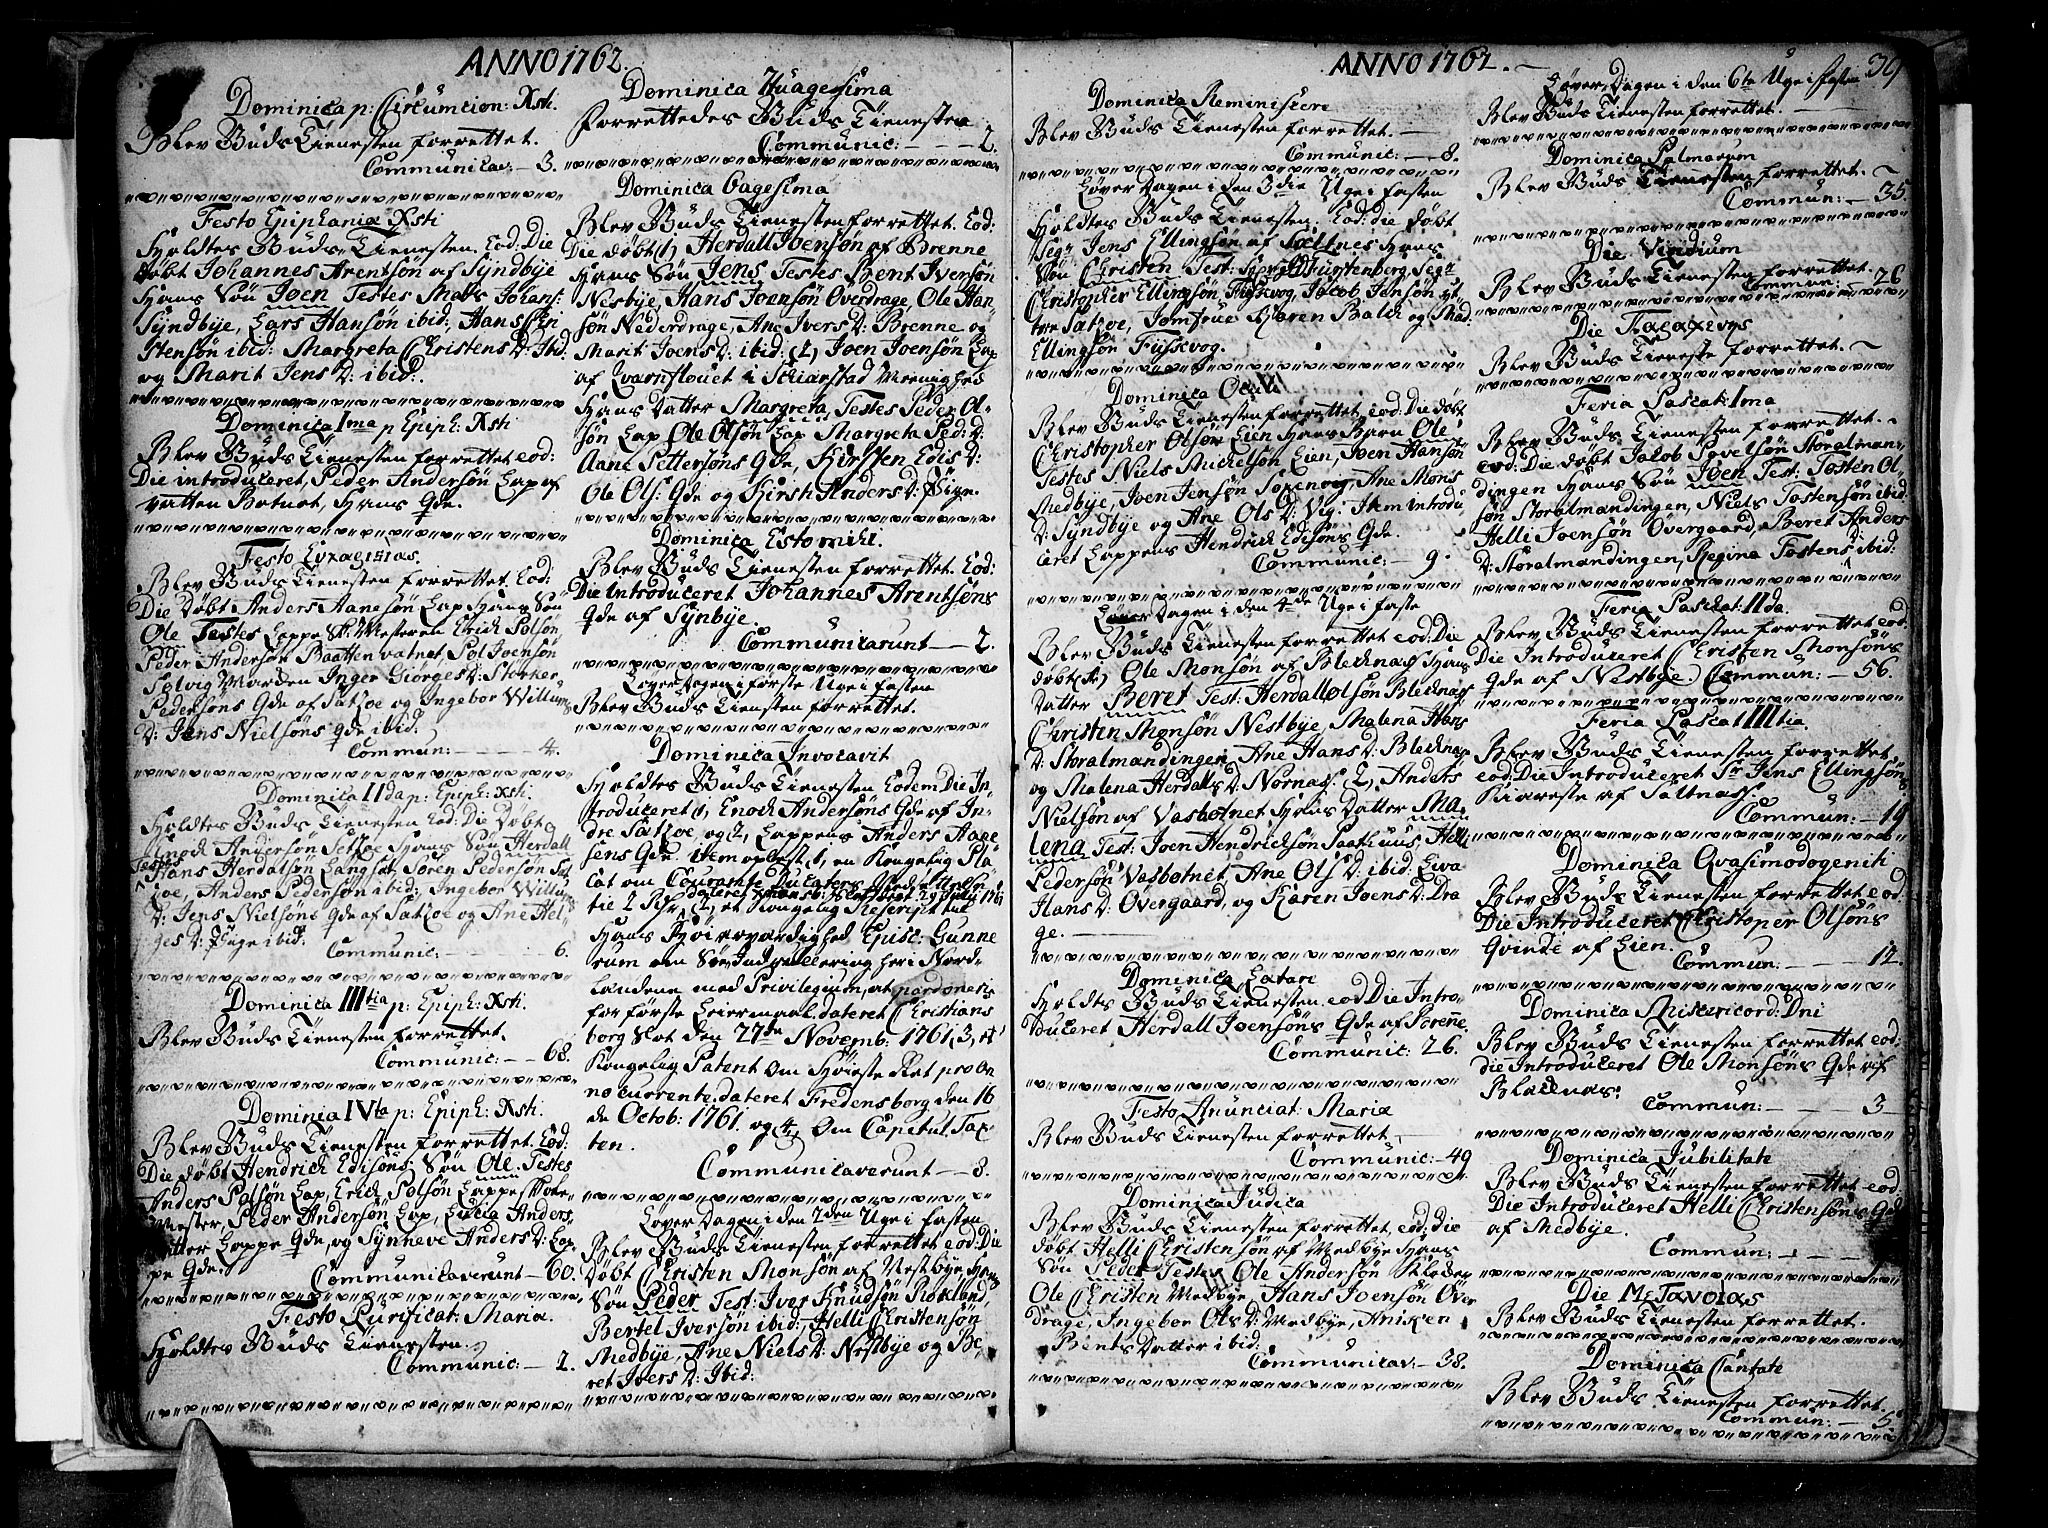 ANNO 1762.
Dominica p: Circumcion: Xsti.
Blev Guds Tienesten forrettet.
Communicav: — 3.
Festo Epiphaniæ Xsti
Holdtes Guds Tienesten. Eod: Die
døbt Johannes Arentsøn af Syndbye
Hans Søn Joen Testes Mads Johans:
Syndbye, Lars Hansøn ibid:, Hans Cri
stensøn ibid: Margreta Christens D: Ibid.
og Marit Jens D: ibid:.
Dominica Ima p Epiph: Xsti
Blev Guds Tienesten forrettet eod:
Die introduceret, Peder Andersøn Lap af
vatten Botnet, Hans Qde.
Festo
Blev Guds Tienesten forrettet. Eod:
Die Døbt Anders Aanesøn Lap Hans Søn
Ole Testes Lappe Sk: Mesteren Erich Polsøn
Peder Andersøn Baatten vatnet, Pol Joensøn
Solvig Marden Inger Giørges D: Storker
Pedersøns Qde af Satzoe og Ingebor Willums
D: Jens Nielsøns Qde ibid.
Commun: — 4.
Dominica IIda p: Epiph: Xsti.
Holdtes Guds Tienesten Eod: Die Døbt
Enoch Andersøn Setzoe Hans Søn Herdall
Testes Hans Herdalsøn Langset, Søren Pedersøn Sat
zoe, Anders Pedersøn ibid:, Ingebor Willums
D: Jens Nielsøns Qde af Satzoe og Ane Hel-
ges D: Pige ibid.
Communic: — 6.
Dominica IIItia p: Epiph: Xsti.
Blev Guds Tienesten forrettet.
Communic: — 68.
Dominia IVta p: Epiph: Xsti.
Blev Guds Tienesten forrettet. Eod:
Die døbt Hendrich Edisøns Søn Ole. Testes
Anders Polsøn Lap, Erich Polsøn Lappe Skole-
Mester, Peder Andersøn Lap, Lucia Anders
Datter Lappe Qde, og Synneve Anders D: Lap-
pe Qde.
Communicaverunt — 60.
Festo Purificat: Mariæ.
Holdtes Guds Tienesten
Communic: — 2.
Dominica 70agesima
Forrettedes Guds Tienesten
Communic: — 2.
Dominica 60agesima
Blev Guds Tienesten forrettet. Eod:
Die døbt (1) Herdall Joensøn af Brenne
Hans Søn Jens Testes Bent Iversøn
Nesbye, Hans Joensøn Øverdrage, Ole Han-
søn Nederdrage, Ane Ivers D: Brenne og
Marit Joens D: ibid: (2) Joen Joensøn Lap
af Qvarnflouet i Schianstad Menighed
Hans Datter Margreta, Testes Peder Ol-
søn Lap, Ole Olsøn Lap Margreta Ped: D:
Aane Pettersøns Qde, Kirsten Edis D:
Ole Ols: Qde og Kirsti Anders D: Pige.
Dominica Estomihi.
Blev Guds Tienesten forrettet. Eod:
Die Introduceret Johannes Arentsøns
Qde af Synbye.
Communicarunt — 2.
Løver Dagen i første Uge i fasten
Blev Guds Tiensten forrettet.
Dominica Invocavit
Holdtes Guds Tienesten Eodem Die In-
troduceret 1, Enoch Andersøns Qde af In-
dre Satzoe, og 2, Lappens Anders Hage
sens Qde. item oplæst 1, en Kongelig Pla
cat om Courante Ducaters Verdie
tie 2 Rdr dateret 29 July 1761
(2, et Kongelig Rescript til
Hans Høiærværdighed Episc: Gunne
rum om Søe Indrulleringen her i Nord-
landene med Privilegium, at pardoneris
for første Leiermaal. dateret Christians
borg Slot den 27de Novemb: 1761, 3, et
Kongelig Patent om Høieste Ret pro An
no currente. dateret Fredensborg den 16
de Octob: 1761. og 4, Om Capitul Tax
ten.
Communicaverunt — 8.
Løver Dagen i den 2den Uge i fasten
Blev Guds Tienesten forrettet eod: Die
Døbt Christen Monsøn af Nestbye Hans
Søn Peder Test: Iver Knudsøn Rokland,
Bertel Iversøn ibid:, Helli Christensøn
Medbye, Ane Niels D: Nestbye og Be-
ret Ivers D: Ibid:
ANNO 1762. —
39
Dominica Reminiscere
Blev Guds Tienesten forrettet. —
Communic: — 8.
Løver Dagen i den 3die Uge i fasten
Holdtes Guds Tienesten. Eod: die døbt
Segr Jens Ellingsøn af Saltnes Hans
Søn Christen Test: Fürstenberg, Segr
Christopher Ellingsøn Fussevog, Jacob Jensøn Yt
tre Satzoe, Jomfrue Karen Balck og Mad.
Ellingsøn Fussevog.
Dominica Oculi
Blev Guds Tienesten forrettet, eod: Die døbt
Christopher Olsøn Lien Hans Barn Ole
Testes Niels Mickelsøn Lien, Joen Hansøn
Medbye, Joen Jensøn Soxenvig, Ane Mons
D: Syndbye og Ane Ols D: Vig: Item Introdu
ceret Lappens Hendrich Edisøns Qde.
Communic: — 9.
Løver Dagen i den 4de Uge i faste
Blev Guds Tienesten forrettet eod: Die
døbt (1) Ole Monsøn af Blechnass Hans
Datter Beret Test: Herdall Olsøn Blecknass
Christen Monsøn Nestbye, Malena Hans
D: Storalmandingen, Ane Hans D: Blecknas
og Malena Herdals D: Nornass. 2, Anders
Nielsøn af Vasbotnet Hans Datter Ma
lena Test: Joen Hendrichsøn Saathuus, Helli
Pedersøn Vasbotnet, Ane Ols D: ibid: Liva
Hans D: Øvergaard, og Karen Joens D: Dra
ge.
Dominica Lætare
Holdtes Guds Tienesten eod Die Intro-
duceret Herdall Joensøns Qde af Brenne.
Communic: 26.
Festo Anunciat: Mariæ
Blev Guds Tienesten forrettet —
Communic: — 49
Dominica Judica
Blev Guds Tienesten forrettet, eod: die
døbt Helli Christensøn af Medbye Hans
Søn Peder Testes Ole Andersøn Kleven
Ole Christen Medbye, Hans Joensøn Over
drage, Ingebor Ols D: Medbye, Aniken
Bents Datter ibid:
Communicav: — 38.
Løver Dagen i den 6te Uge i fasten
Blev Guds Tienesten forrettet. —
Dominica Palmarum
Blev Guds Tienesten forrettet. —
Commun: — 35.
Die Viridium
Blev Guds Tienesten forrettet.
Commun: — 26
Die Παρασκευης
Blev Guds Tieneste forrettet. —
Feria Pascat: Ima
Blev Guds Tienesten forrettet. —
eod: Die døbt Jacob Povelsøn Storalman-
dingen Hans Søn Joen Test: Tosten Ol-
søn Storalmandingen, Niels Tostensøn ibid.
Helli Joensøn Overgaard, Beret Anders-
D: Storalmandingen, Regina Tostens ibid:
Feria Paschat: IIda.
Blev Guds Tienesten forrettet eod.
Die Introduceret Christen Monsøns
Qde af Nestbye. Commun: — 56.
Feria Pascat IIItia.
Blev Guds Tienesten forrettet
eod: Die Introduceret Sr Jens Ellingsøns
Kiæreste af Saltnass.
Commun: — 19
Dominica Qvasimodogeniti
Blev Guds Tienesten forrettet eod:
Die Introduceret Christoper Olsøns
Qvinde af Lien.
Commun: — 12.
Dominica Misericord: Dni
Blev Guds Tienesten forrettet eod:
die Introduceret Ole Monsøns Qde af
Blacnas:
Commun: — 3
Dominica Jubilitate
Blev Guds Tienesten forrettet eod:
Die Introduceret Helli Christensøns Qde
af Medbye.
Commun: —
Die Μετανοιας
Blev Guds Tienesten forrettet.
Dominica Cantate
Blev Guds Tienesten forrettet.
Commun: — 5